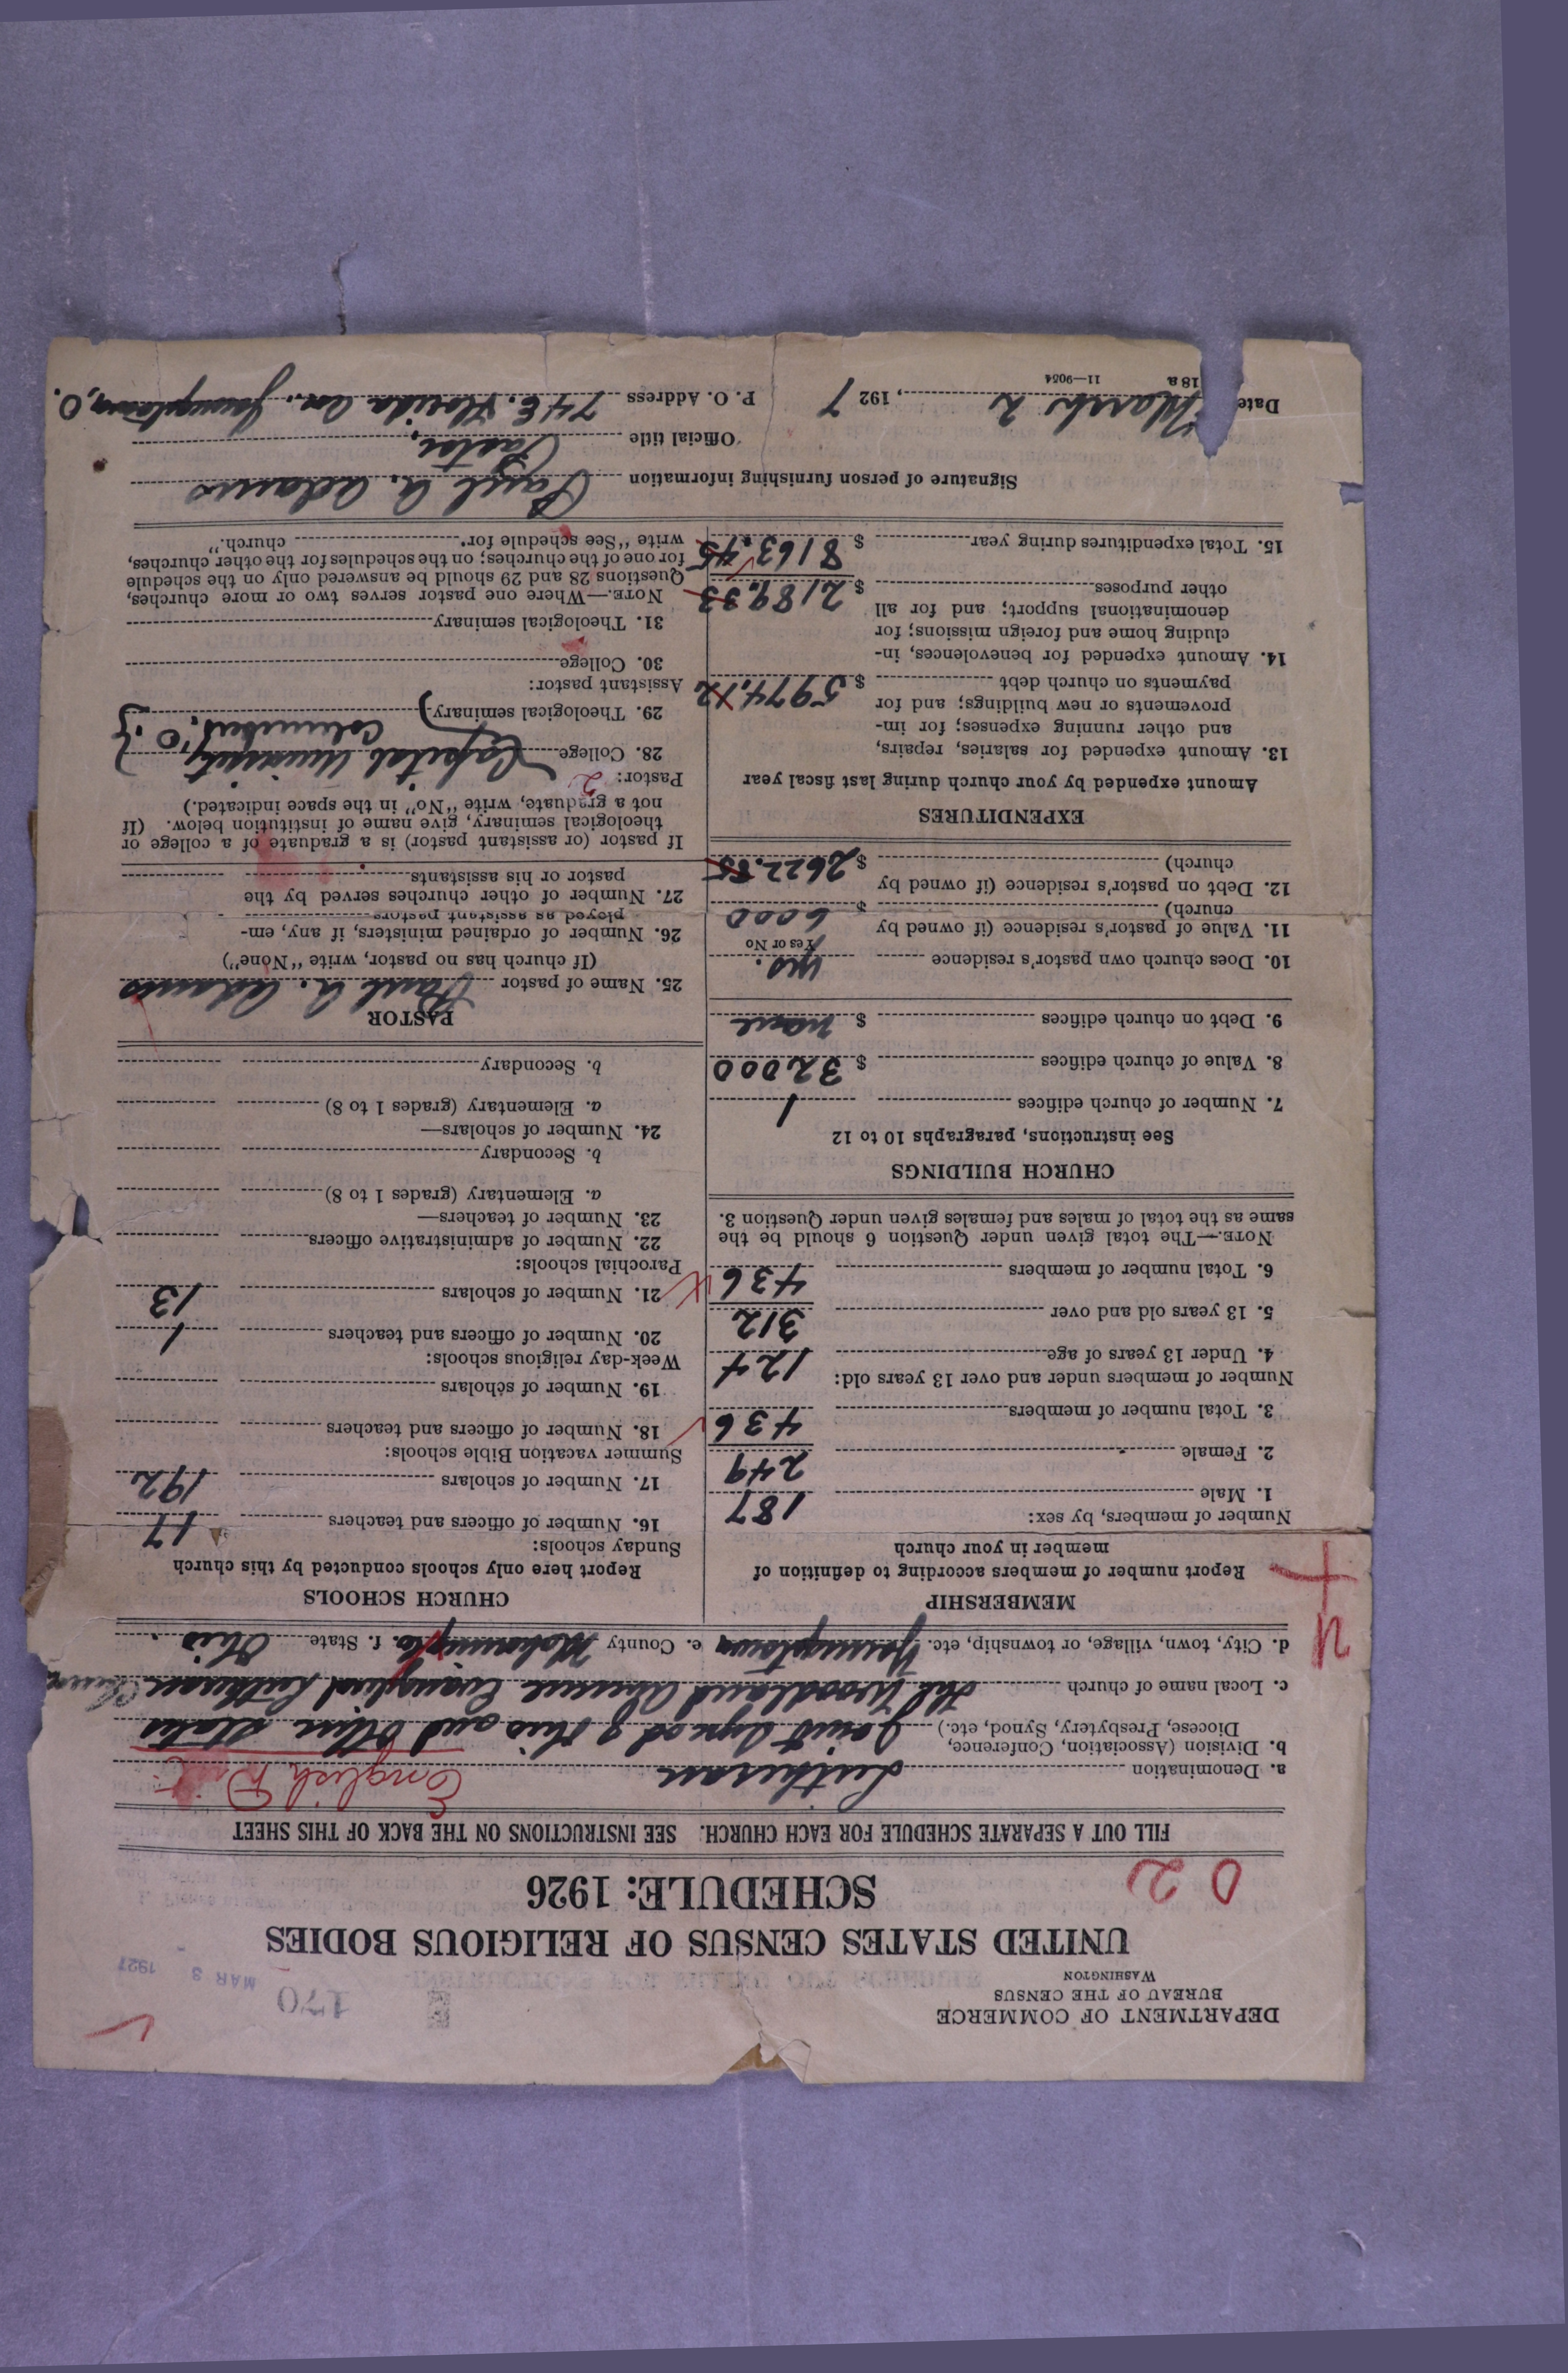 DEPARTMENT OF COMMERCE
BUREAU OF THE CENSUS
WASHINGTON
170
MAR 3 1927
UNITED STATES CENSUS OF RELIGIOUS BODIES
SCHEDULE: 1926
0 2
FILL OUT A SEPARATE SCHEDULE FOR EACH CHURCH. SEE INSTRUCTIONS ON THE BACK OF THIS SHEET
a. Denomination Lutheran English
b. Division (Association, Conference,
Diocese, Presbytery, Synod, etc.) Joint Synod of Ohio and Other States
c. Local name of church The Woodland Avenue Evangelical Lutheran Church
d. City, town, village, or township, etc. Youngstown e. County Mahoning Co. f. State Ohio.
MEMBERSHIP
Report number of members according to definition of
member in your church
Number of members, by sex:
1. Male 187
2. Female 249
3. Total number of members 436
Number of members under and over 13 years old:
4. Under 13 years of age 124
5. 13 years old and over 312
6. Total number of members 436
NOTE.—The total given under Question 6 should be the
same as the total of males and females given under Question 3.
CHURCH BUILDINGS
See instructions, paragraphs 10 to 12
7. Number of church edifices 1
8. Value of church edifices $ 32000
9. Debt on church edifices $ none
10. Does church own pastor's residence yes.
Yes or No
11. Value of pastor's residence (if owned by
church) $ 6000
12. Debt on pastor's residence (if owned by
church) $ 2622.85
EXPENDITURES
Amount expended by your church during last fiscal year
13. Amount expended for salaries, repairs,
and other running expenses; for im-
provements or new buildings; and for
payments on church debt $ 5974.12
14. Amount expended for benevolences, in-
cluding home and foreign missions; for
denominational support; and for all
other purposes $ 2189.33
15. Total expenditures during year $ 8163.45
CHURCH SCHOOLS
Report here only schools conducted by this church
Sunday schools:
16. Number of officers and teachers 17
17. Number of scholars 192
Summer vacation Bible schools:
18. Number of officers and teachers
19. Number of scholars
Week-day religious schools:
20. Number of officers and teachers 1
21. Number of scholars 13
Parochial schools:
22. Number of administrative officers
23. Number of teachers—
a. Elementary (grades 1 to 8)
b. Secondary
24. Number of scholars—
a. Elementary (grades 1 to 8)
b. Secondary
PASTOR
25. Name of pastor Paul A. Adams
(If church has no pastor, write "None")
26. Number of ordained ministers, if any, em-
ployed as assistant pastors
27. Number of other churches served by the
pastor or his assistants
If pastor (or assistant pastor) is a graduate of a college or
theological seminary, give name of institution below. (If
not a graduate, write "No" in the space indicated.)
Pastor: 2
28. College Capital University
29. Theological seminary Columbus, O.
Assistant pastor:
30. College
31. Theological seminary
NOTE.—Where one pastor serves two or more churches,
Questions 28 and 29 should be answered only on the schedule
for one of the churches; on the schedules for the other churches,
write "See schedule for church."
Signature of person furnishing information Paul A. Adams
Official title Pastor
Date March 2, 1927 P. O. Address 74 E. Florida Ave., Youngstown, O.
18 a 11—9054